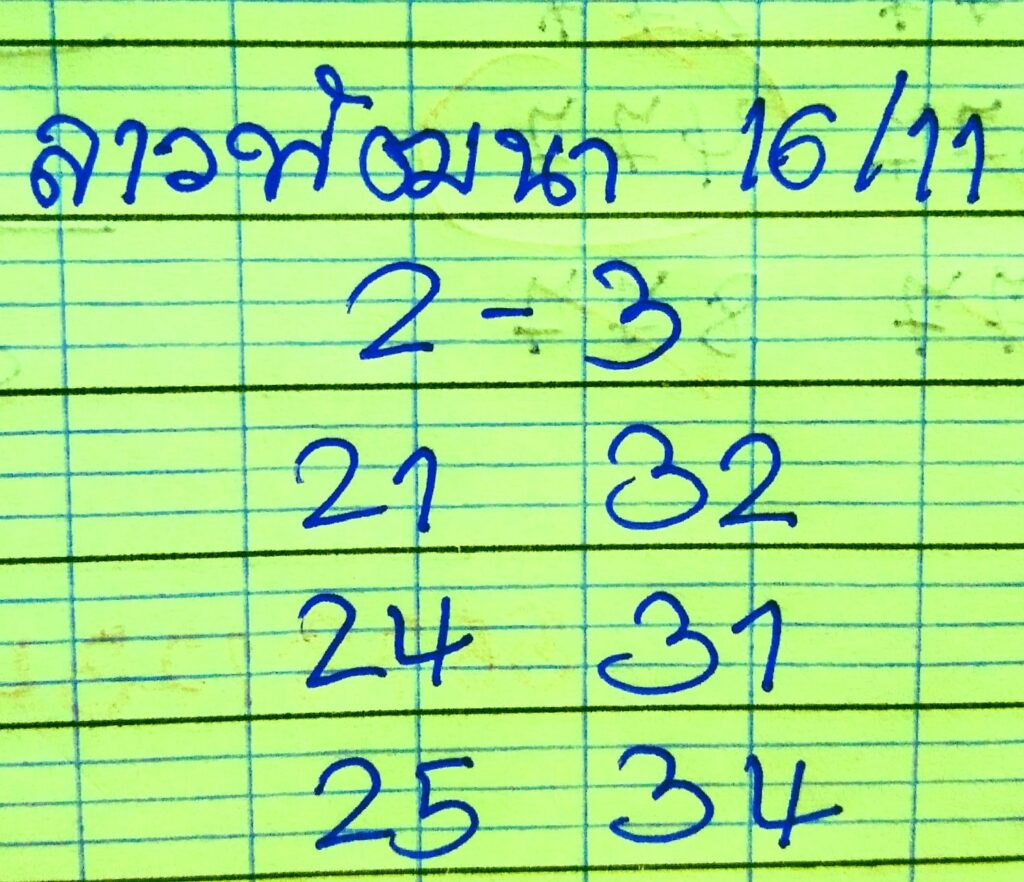 ลาวพัฒนา 16/11
2 - 3
21 32
24 31
25 34